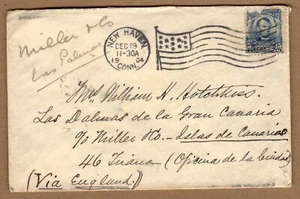 Miller & Co
Las Palmas
NEW HAVEN
DEC 19
11-30A
1904
CONN.
Mrs. William H. Hotchkiss
Las Dalmas de la Gran Canaria
c/o Miller & Co. - Islas de Canarias
46 Triana (Oficina de la Ciudad)
(Via England)